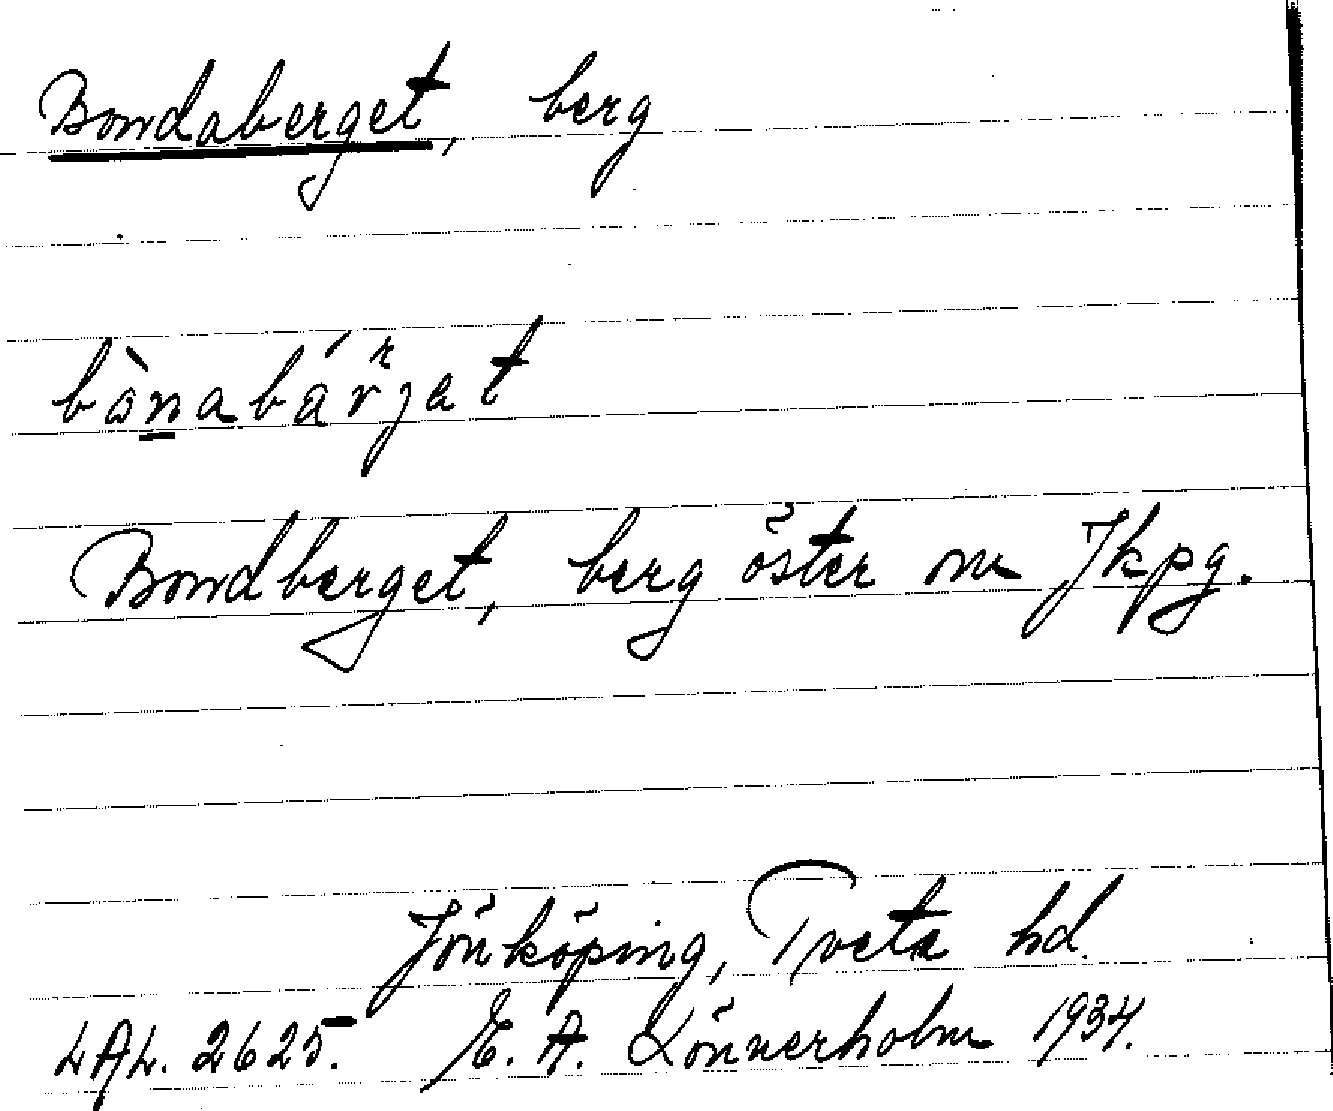 Bondaberget, berg
bònabárjat
Bondberget, berg öster om Jkpg.
Jönköping, Tveta hd.
LAL. 2625. E. A. Lönnerholm 1934.